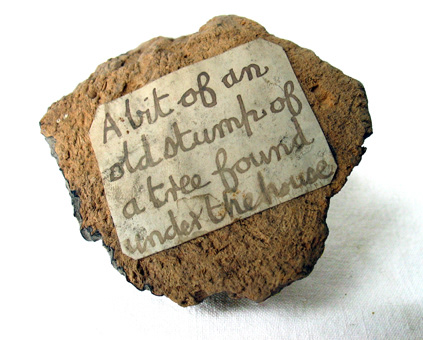 A bit of an
old stump of
a tree found
under the house